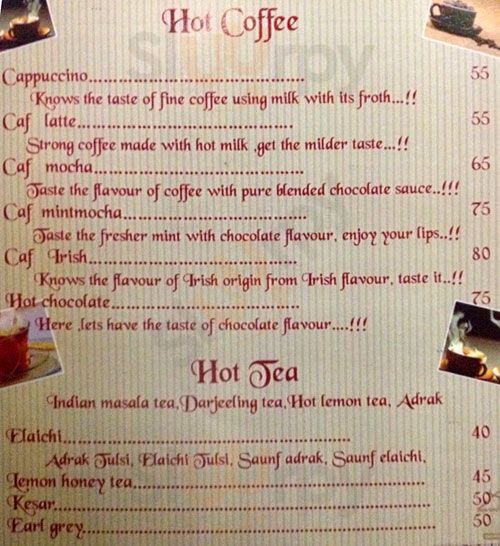 Hot Coffee
Cappuccino........................................ 55
Knows the taste of fine coffee using milk with its froth...!!
Caf latte........................................ 55
Strong coffee made with hot milk ,get the milder taste...!!
Caf mocha...................................... 65
Taste the flavour of coffee with pure blended chocolate sauce..!!!
Caf mintmocha.................................. 75
Taste the fresher mint with chocolate flavour, enjoy your lips..!!
Caf Irish....................................... 80
Knows the flavour of Irish origin from Irish flavour, taste it..!!
Hot chocolate................................... 75
Here ,lets have the taste of chocolate flavour....!!!
Hot Tea
Indian masala tea,Darjeeling tea,Hot lemon tea, Adrak
Elaichi..................................................... 40
Adrak Tulsi, Elaichi Tulsi, Saunf adrak, Saunf elaichi,
Lemon honey tea...................................................... 45
Kesar..................................................................... 50
Earl grey................................................................ 50